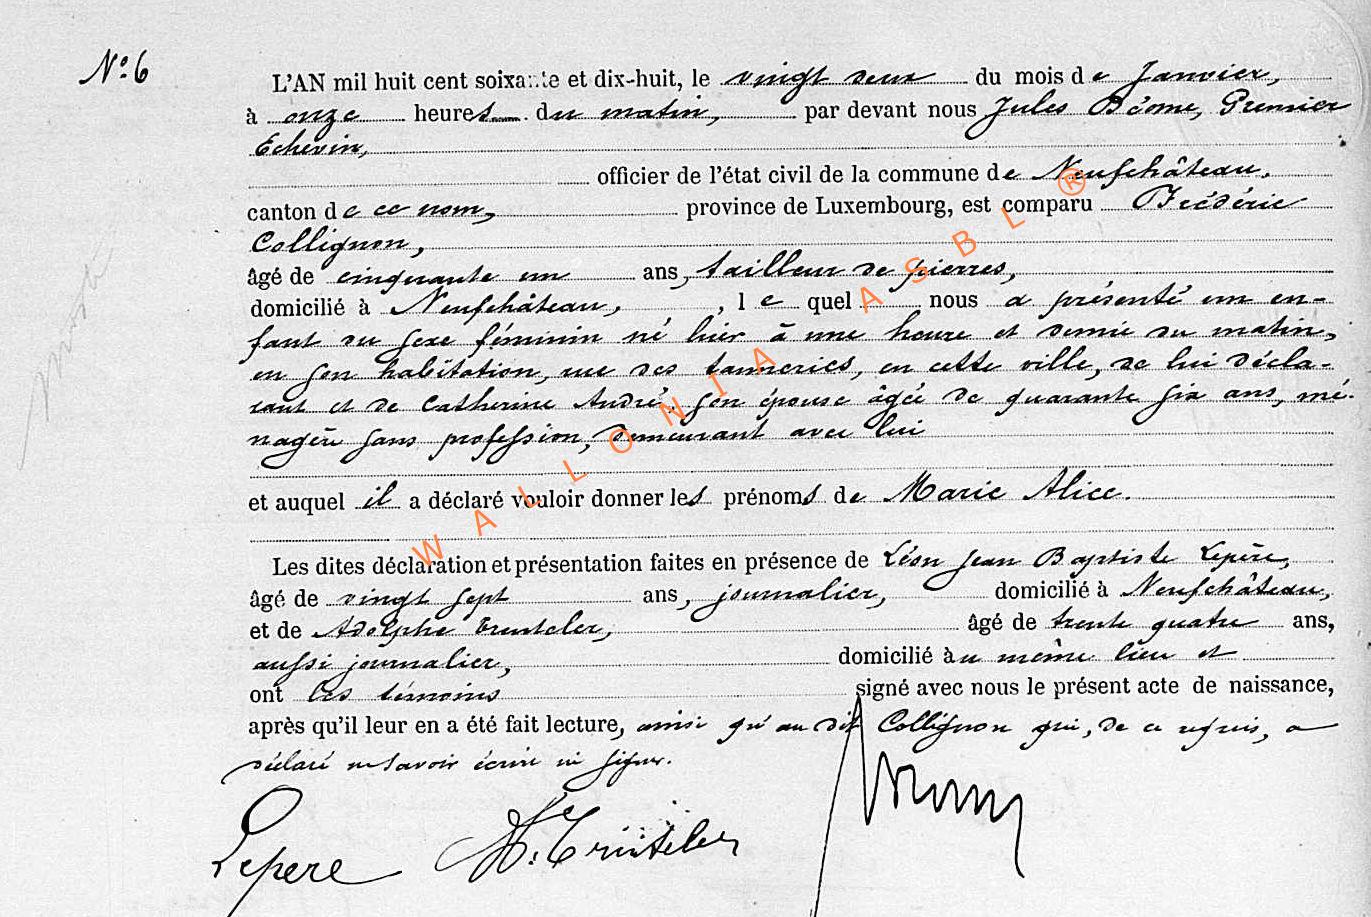 N° 6
L'AN mil huit cent soixante et dix-huit, le vingt deux du mois de Janvier,
à onze heures du matin, par devant nous Jules Déome, Premier
Echevin,
officier de l'état civil de la commune de Neufchâteau,
canton de ce nom, province de Luxembourg, est comparu Frédéric
Collignon,
âgé de cinquante un ans, tailleur de pierres,
domicilié à Neufchâteau, , le quel nous a présenté un en-
fant du sexe féminin né hier à une heure et demie du matin,
en son habitation, rue des tanneries, en cette ville, de lui décla-
rant et de Catherine André, son épouse âgée de quarante six ans, mé-
nagère sans profession, demeurant avec lui
et auquel il a déclaré vouloir donner les prénoms de Marie Alice.
Les dites déclaration et présentation faites en présence de Léon Jean Baptiste Lepère,
âgé de vingt sept ans, journalier, domicilié à Neufchâteau,
et de Adolphe Treuteler, âgé de trente quatre ans,
aussi journalier, domicilié au même lieu et
ont les témoins signé avec nous le présent acte de naissance,
après qu'il leur en a été fait lecture, ainsi qu'au dit Collignon qui, de ce requis, a
déclaré ne savoir écrire ni signer.
Lepere A. Trüteler
WALLONIA ASBL ®